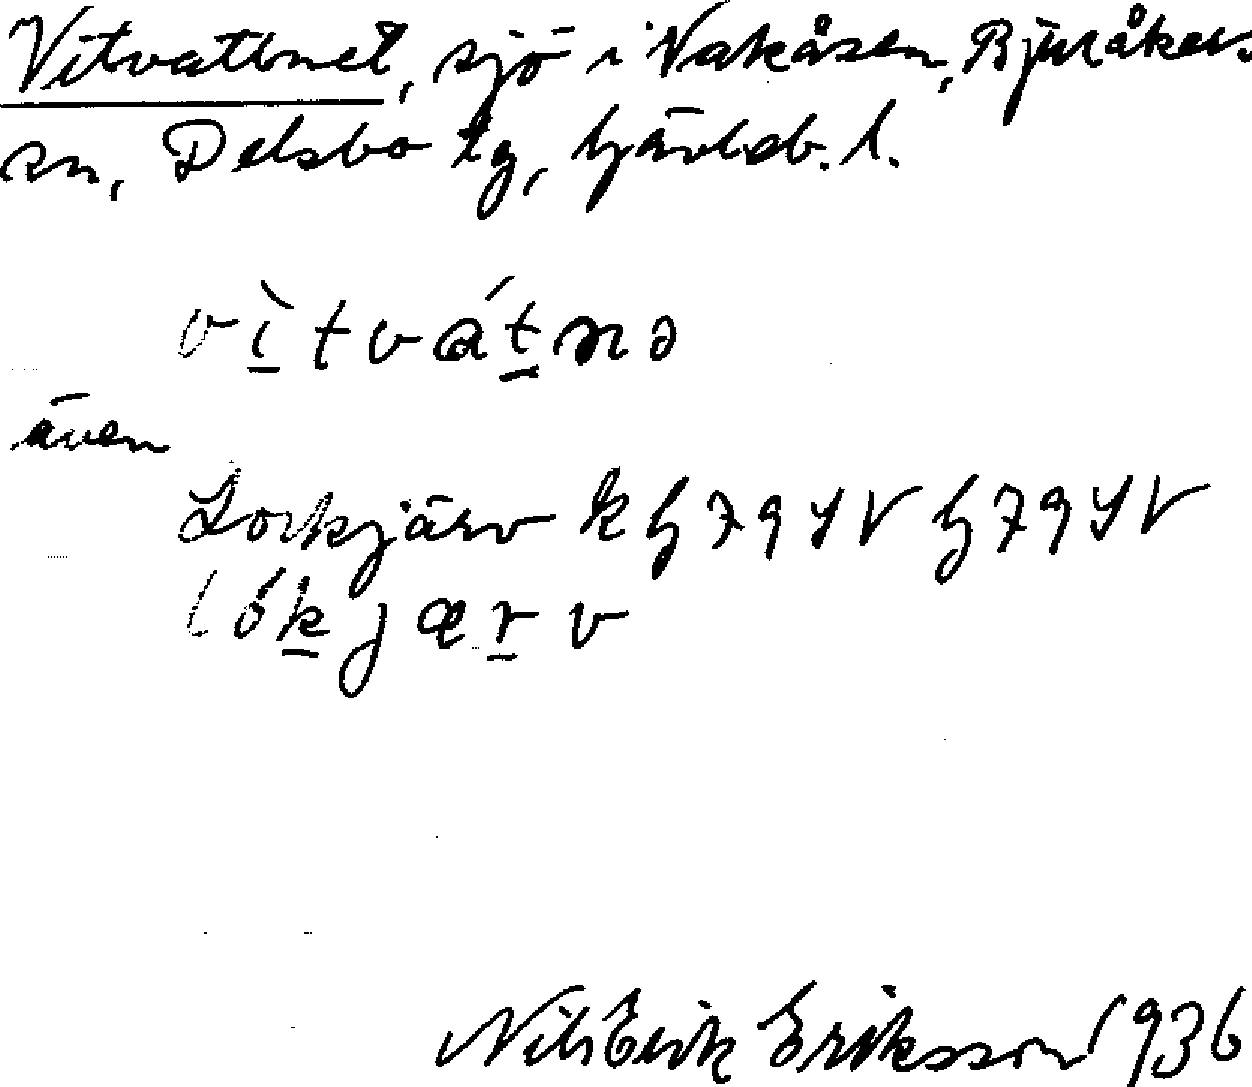 Vitvattnet, sjö i Nakåsen, Bjuråkers
sn, Delsbo tg, Gävleb. l.
vìtvátnə
även
Lorkjärv
lókjærv
Nils Erik Eriksson 1936